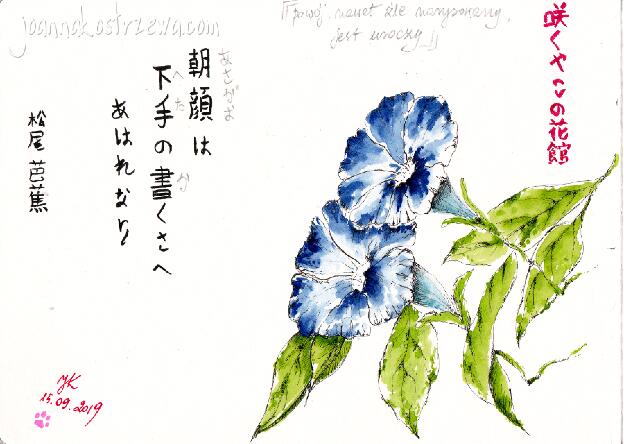 joannakostrzewa.com
"Powój, nawet źle narysowany,
jest uroczy"
咲くやこの花館
あさがお
朝顔は
へた か
下手の書くさへ
あはれなり
松尾芭蕉
JK
15.09.2019